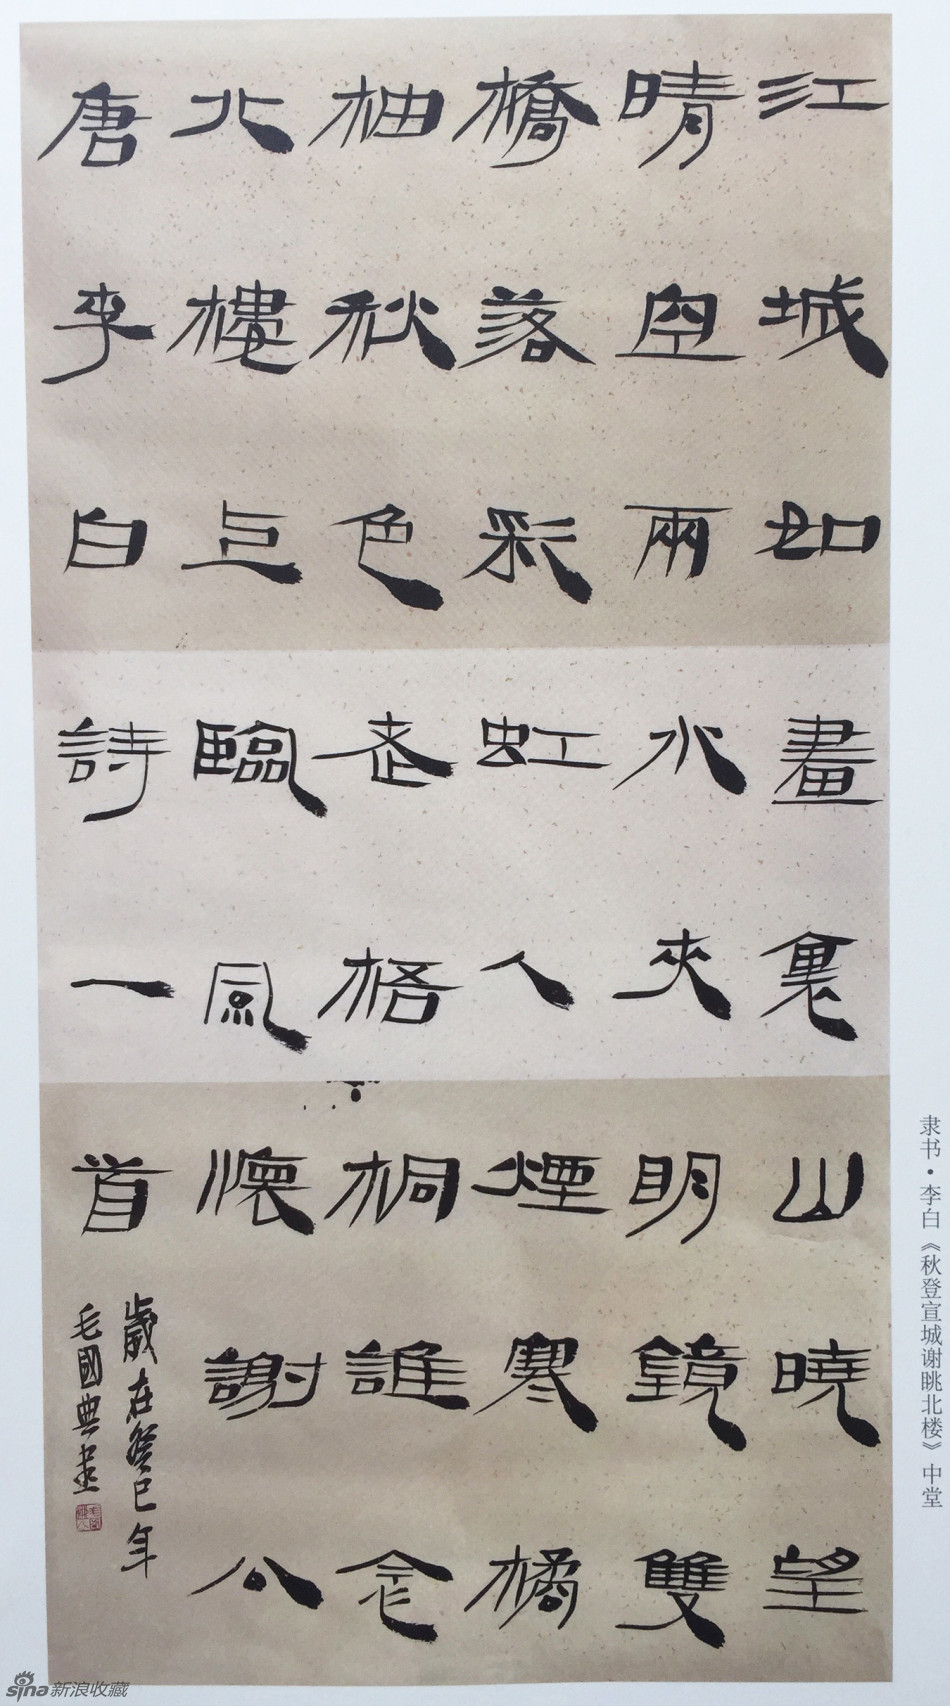 江城如畫裏山曉望
晴空兩水夾明鏡雙
橋落彩虹人煙寒橘
柚秋色老梧桐誰念
北樓上臨風懷謝公
唐李白詩一首
歲在癸巳年
毛國典書
隶书•李白《秋登宣城谢眺北楼》中堂
sina新浪收藏